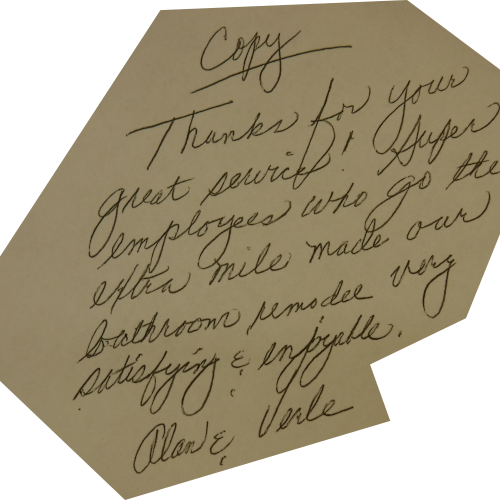 Copy
Thanks for your
great service! Super
employees who go the
extra mile made our
bathroom remodel very
satisfying & enjoyable.
Alan & Verle